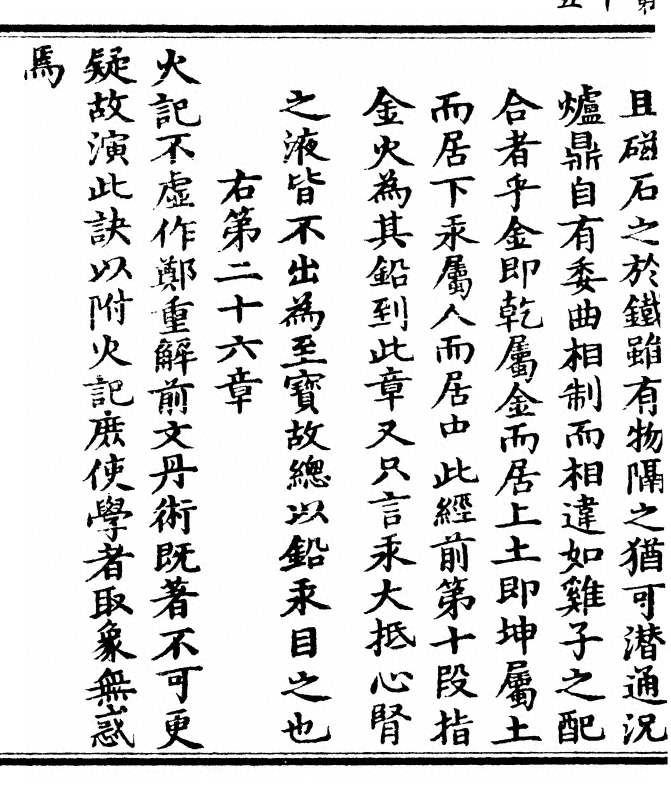 且磁石之於鐵雖有物隔之猶可潛通況
爐鼎自有委曲相制而相違如雞子之配
合者乎金即乾屬金而居上土即坤屬土
而居下汞屬人而居中此經前第十段指
金火為其鉛到此章又只言汞大抵心腎
之液皆不出為至寶故總以鉛汞目之也
右第二十六章
火記不虛作鄭重解前文丹術既著不可更
疑故演此訣以附火記庶使學者取象無惑
焉